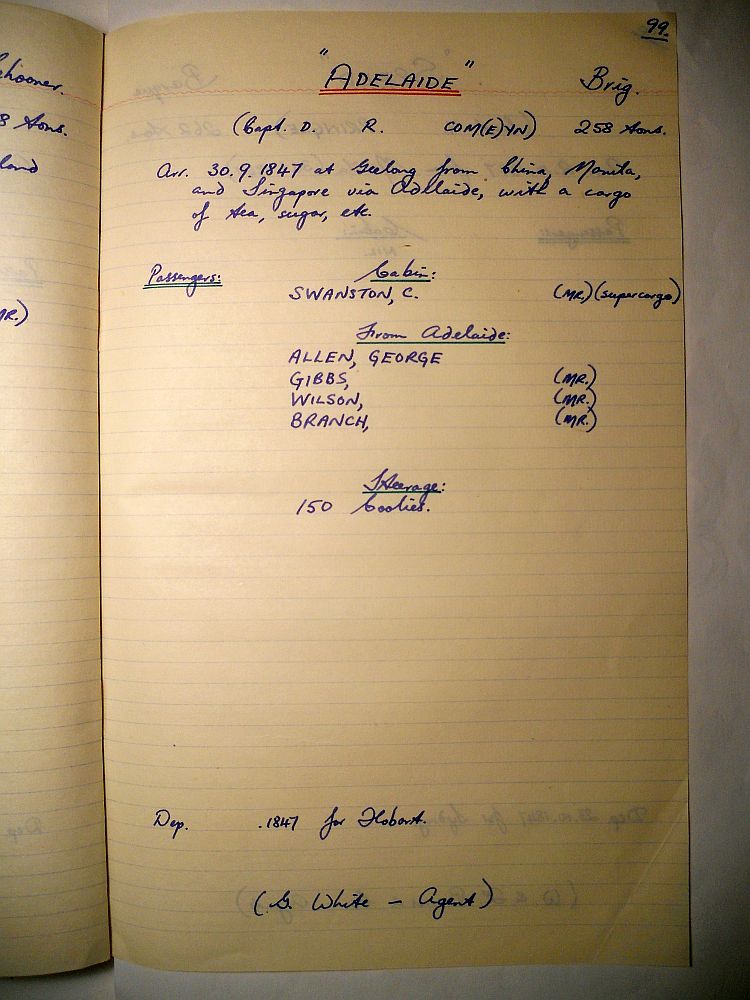 chooner.
8 tons.
land
MR.)
99.
"ADELAIDE" Brig.
(Capt. D. R. COM(E)YN) 258 tons.
Arr. 30.9.1847 at Geelong from China, Manila,
and Singapore via Adelaide, with a cargo
of tea, sugar, etc.
Passengers: Cabin:
SWANSTON, C. (MR.) (supercargo)
From Adelaide:
ALLEN, GEORGE
GIBBS, (MR.)
WILSON, (MR.)
BRANCH, (MR.)
Steerage:
150 Coolies.
Dep. .1847 for Hobart.
(G. White - Agent)